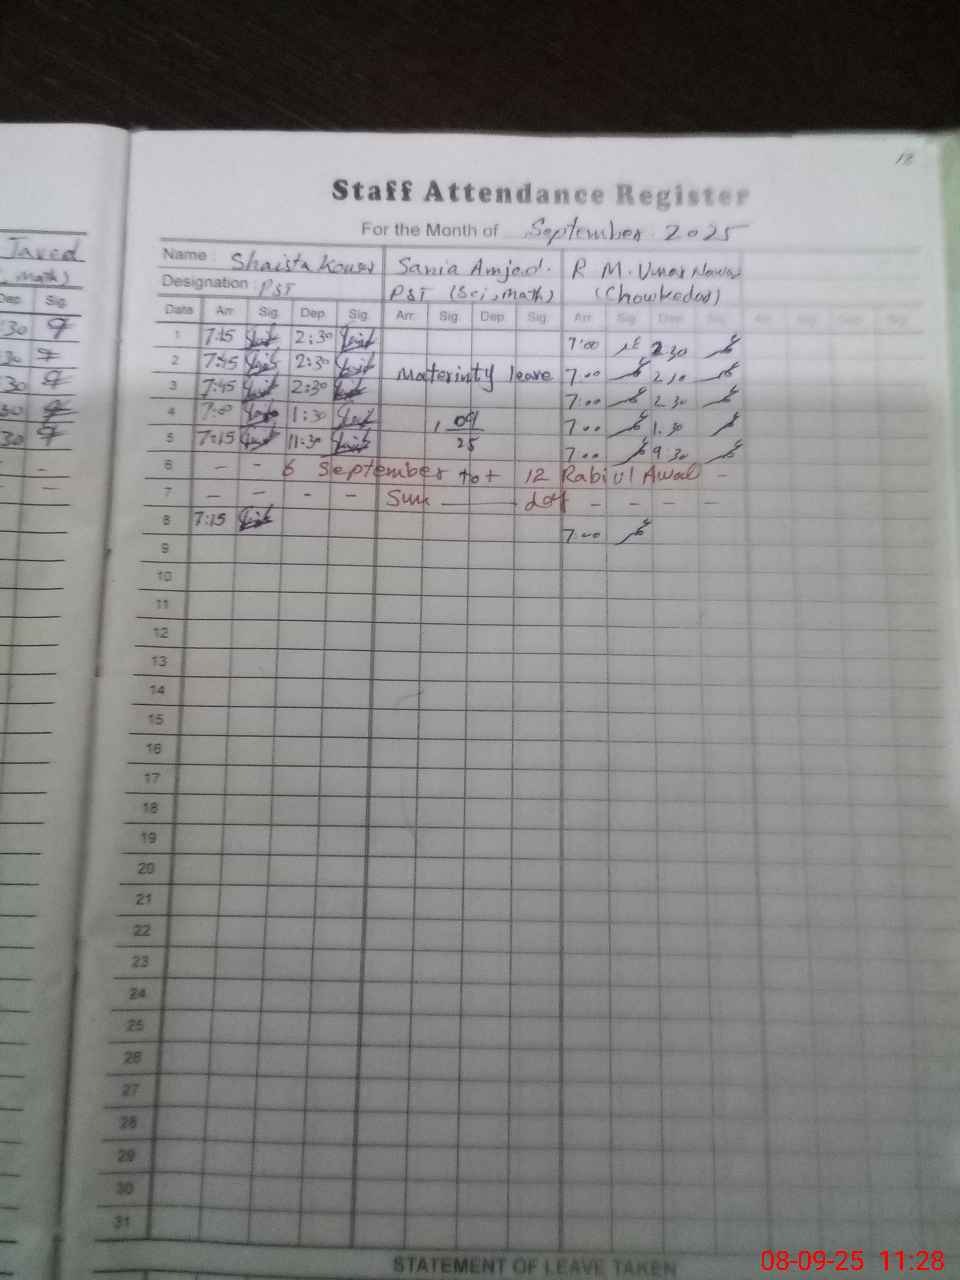 12
Staff Attendance Register
For the Month of September 2025
Javed
Name: Shaista Kousar Sania Amjad. R M. Umar Nawaz
, math)
Designation: PST PST (Sci, math) (Chowkedar)
Dep. Sig.
Date Arr. Sig. Dep. Sig. Arr. Sig. Dep. Sig. Arr. Sig. Dep. Sig.
:30
1 7:15 2:30 7:00 2:30
30
2 7:45 2:30 Materinty leave 7:00 2:10
30
3 7:45 2:30 7:00 2:30
30
4 1:30 1 09 7:00 1:30
30
5 7:15 11:30 25 7:00 9:30
6 - - 6 September to + 12 Rabi ul Awal -
7 - - - - Sun - - - -
8 7:15 7:00
9
10
11
12
13
14
15
16
17
18
19
20
21
22
23
24
25
26
27
28
29
30
31
STATEMENT OF LEAVE TAKEN
08-09-25 11:28